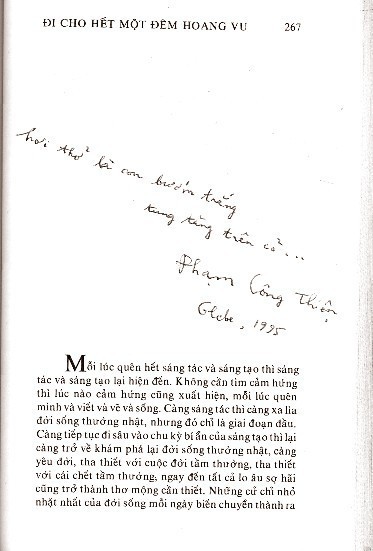 ĐI CHO HẾT MỘT ĐÊM HOANG VU 267
hơi thở là con bướm trắng
tung tăng trên cỏ...
Phạm Công Thiện
Glebe, 1995
Mỗi lúc quên hết sáng tác và sáng tạo thì sáng
tác và sáng tạo lại hiện đến. Không cần tìm cảm hứng
thì lúc nào cảm hứng cũng xuất hiện, mỗi lúc quên
mình và viết và vẽ và sống. Càng sáng tác thì càng xa lìa
đời sống thường nhật, nhưng đó chỉ là giai đoạn đầu.
Càng tiếp tục đi sâu vào chu kỳ bí ẩn của sáng tạo thì lại
càng trở về khám phá lại đời sống thường nhật, càng
yêu đời, tha thiết với cuộc đời tầm thường, tha thiết
với cái chết tầm thường, ngay đến tất cả lo âu sợ hãi
cũng trở thành thơ mộng cần thiết. Những cử chỉ nhỏ
nhặt nhất của đời sống mỗi ngày biến chuyển thành ra